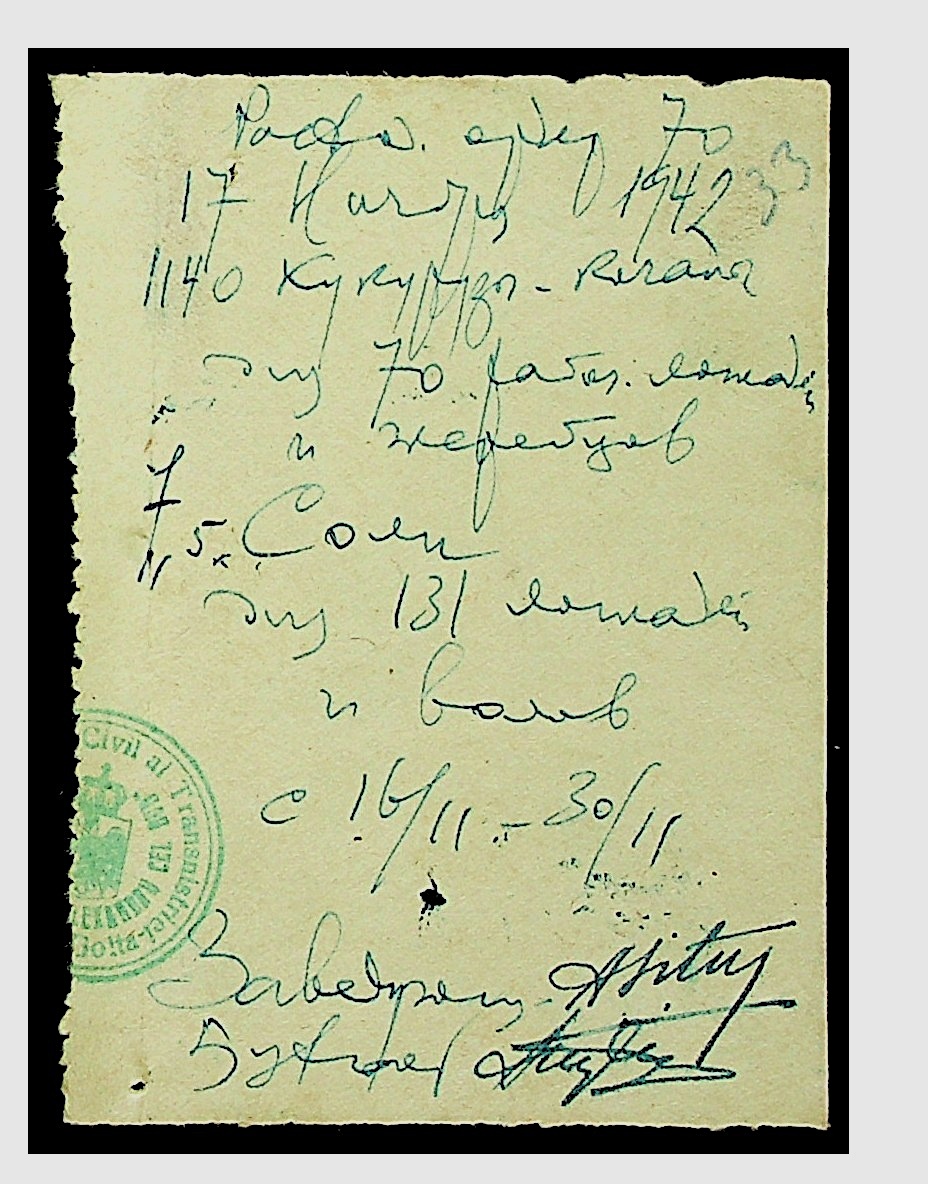 Расх. ордер 70
17 Ноября 1942
33
1140 Кукурузы - качана
для 70 рабоч. лошадей
и жеребцов
7,5 к. Соли
для 131 лошадей
и волов
с 16/11 - 30/11
Заведующ.
Бухгалтер
Civil al Transnistriei